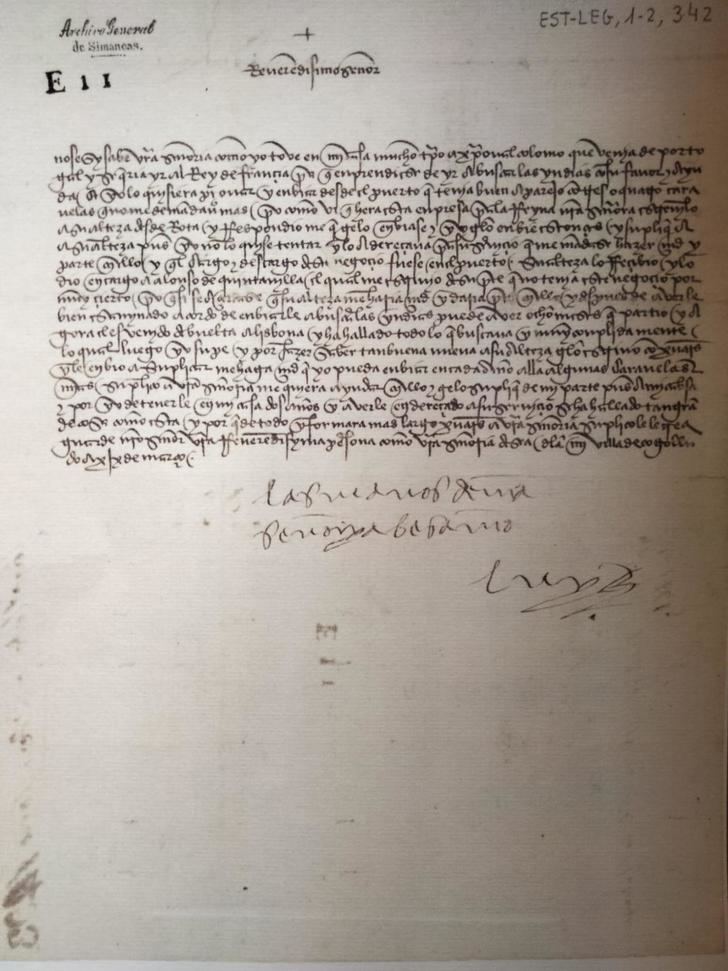 Archivo General
de Simancas.
EST-LEG, 1-2, 342
E 11
+
Reverēdisimo señor
no se sy sabe vrā señoria como yo tove en mi casa mucho tpo a xpoual colomo que venia de porto
gal y se q̄ria yr al Rey de françia pa q̄ emprendiese de yr a buscar las yndias con su favor y ayu
da e yo lo quisiera y enbiar desde el puerto q̄ tenia buen aparejo con tres o quatro cara
velas q̄ no me demādava mas po como vi q̄ hera esta enpresa pa la Reyna nrā señora escreuilo
a su alteza desde Rota y Respondio me q̄ gelo enbiase y yo gelo enbie entonçes y suplique a
su alteza pues yo no lo quise tentar y lo adereçaua pa su seruiçio que me mādase hazer md y
parte en ello y q̄l cargo y descargo deste negoçio fuese en el puerto Su alteza lo Reçibio y lo
dio en cargo a alonso de quintanilla el qual me escriuio de su pte que no tenia este negoçio por
muy çierto po q̄ si se açertase q̄ su alteza me haria md y daria pte en ello y despues de auerle
bien esaminado acordo de enbiarle a buscar las yndias puede aver ocho meses q̄ partio y a
gora el es venido de buelta a lisbona y ha hallado todo lo q̄ buscaua y muy complidamente
lo qual luego yo supe y por fazer saber tan buena nueua a su alteza gelo escriuo con xuares
y le enbio a suplicar me haga md q̄ yo pueda enbiar en cada año alla algunas carauelas
mias suplico a vrā señoria me quiera ayudar en ello y gelo suplique de mi parte pues a my cabsa
y por yo detenerle en mi casa dos años y averle endereçado a su seruiçio se ha hallado tan grā
de cosa como esta y por que de todo ynformara mas largo xuares a vrā señoria suplicole le crea
guarde nrō señor vrā Reuerēdisyma psona como vrā señoria desea de la mi villa de cogollu
do a xix de março
las manos de vrā
señoria besamos
luys